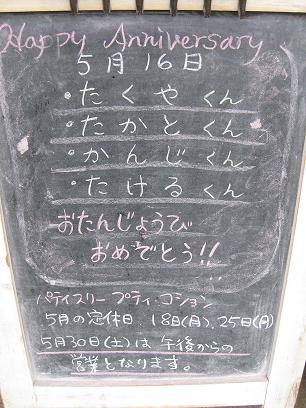 Happy Anniversary
5月16日
・たくやくん
・たかとくん
・かんじくん
・たけるくん
おたんじょうび
おめでとう!!
パティスリー プティ・コション
5月の定休日、18日(月)、25日(月)
5月30日(土)は午後からの
営業となります。